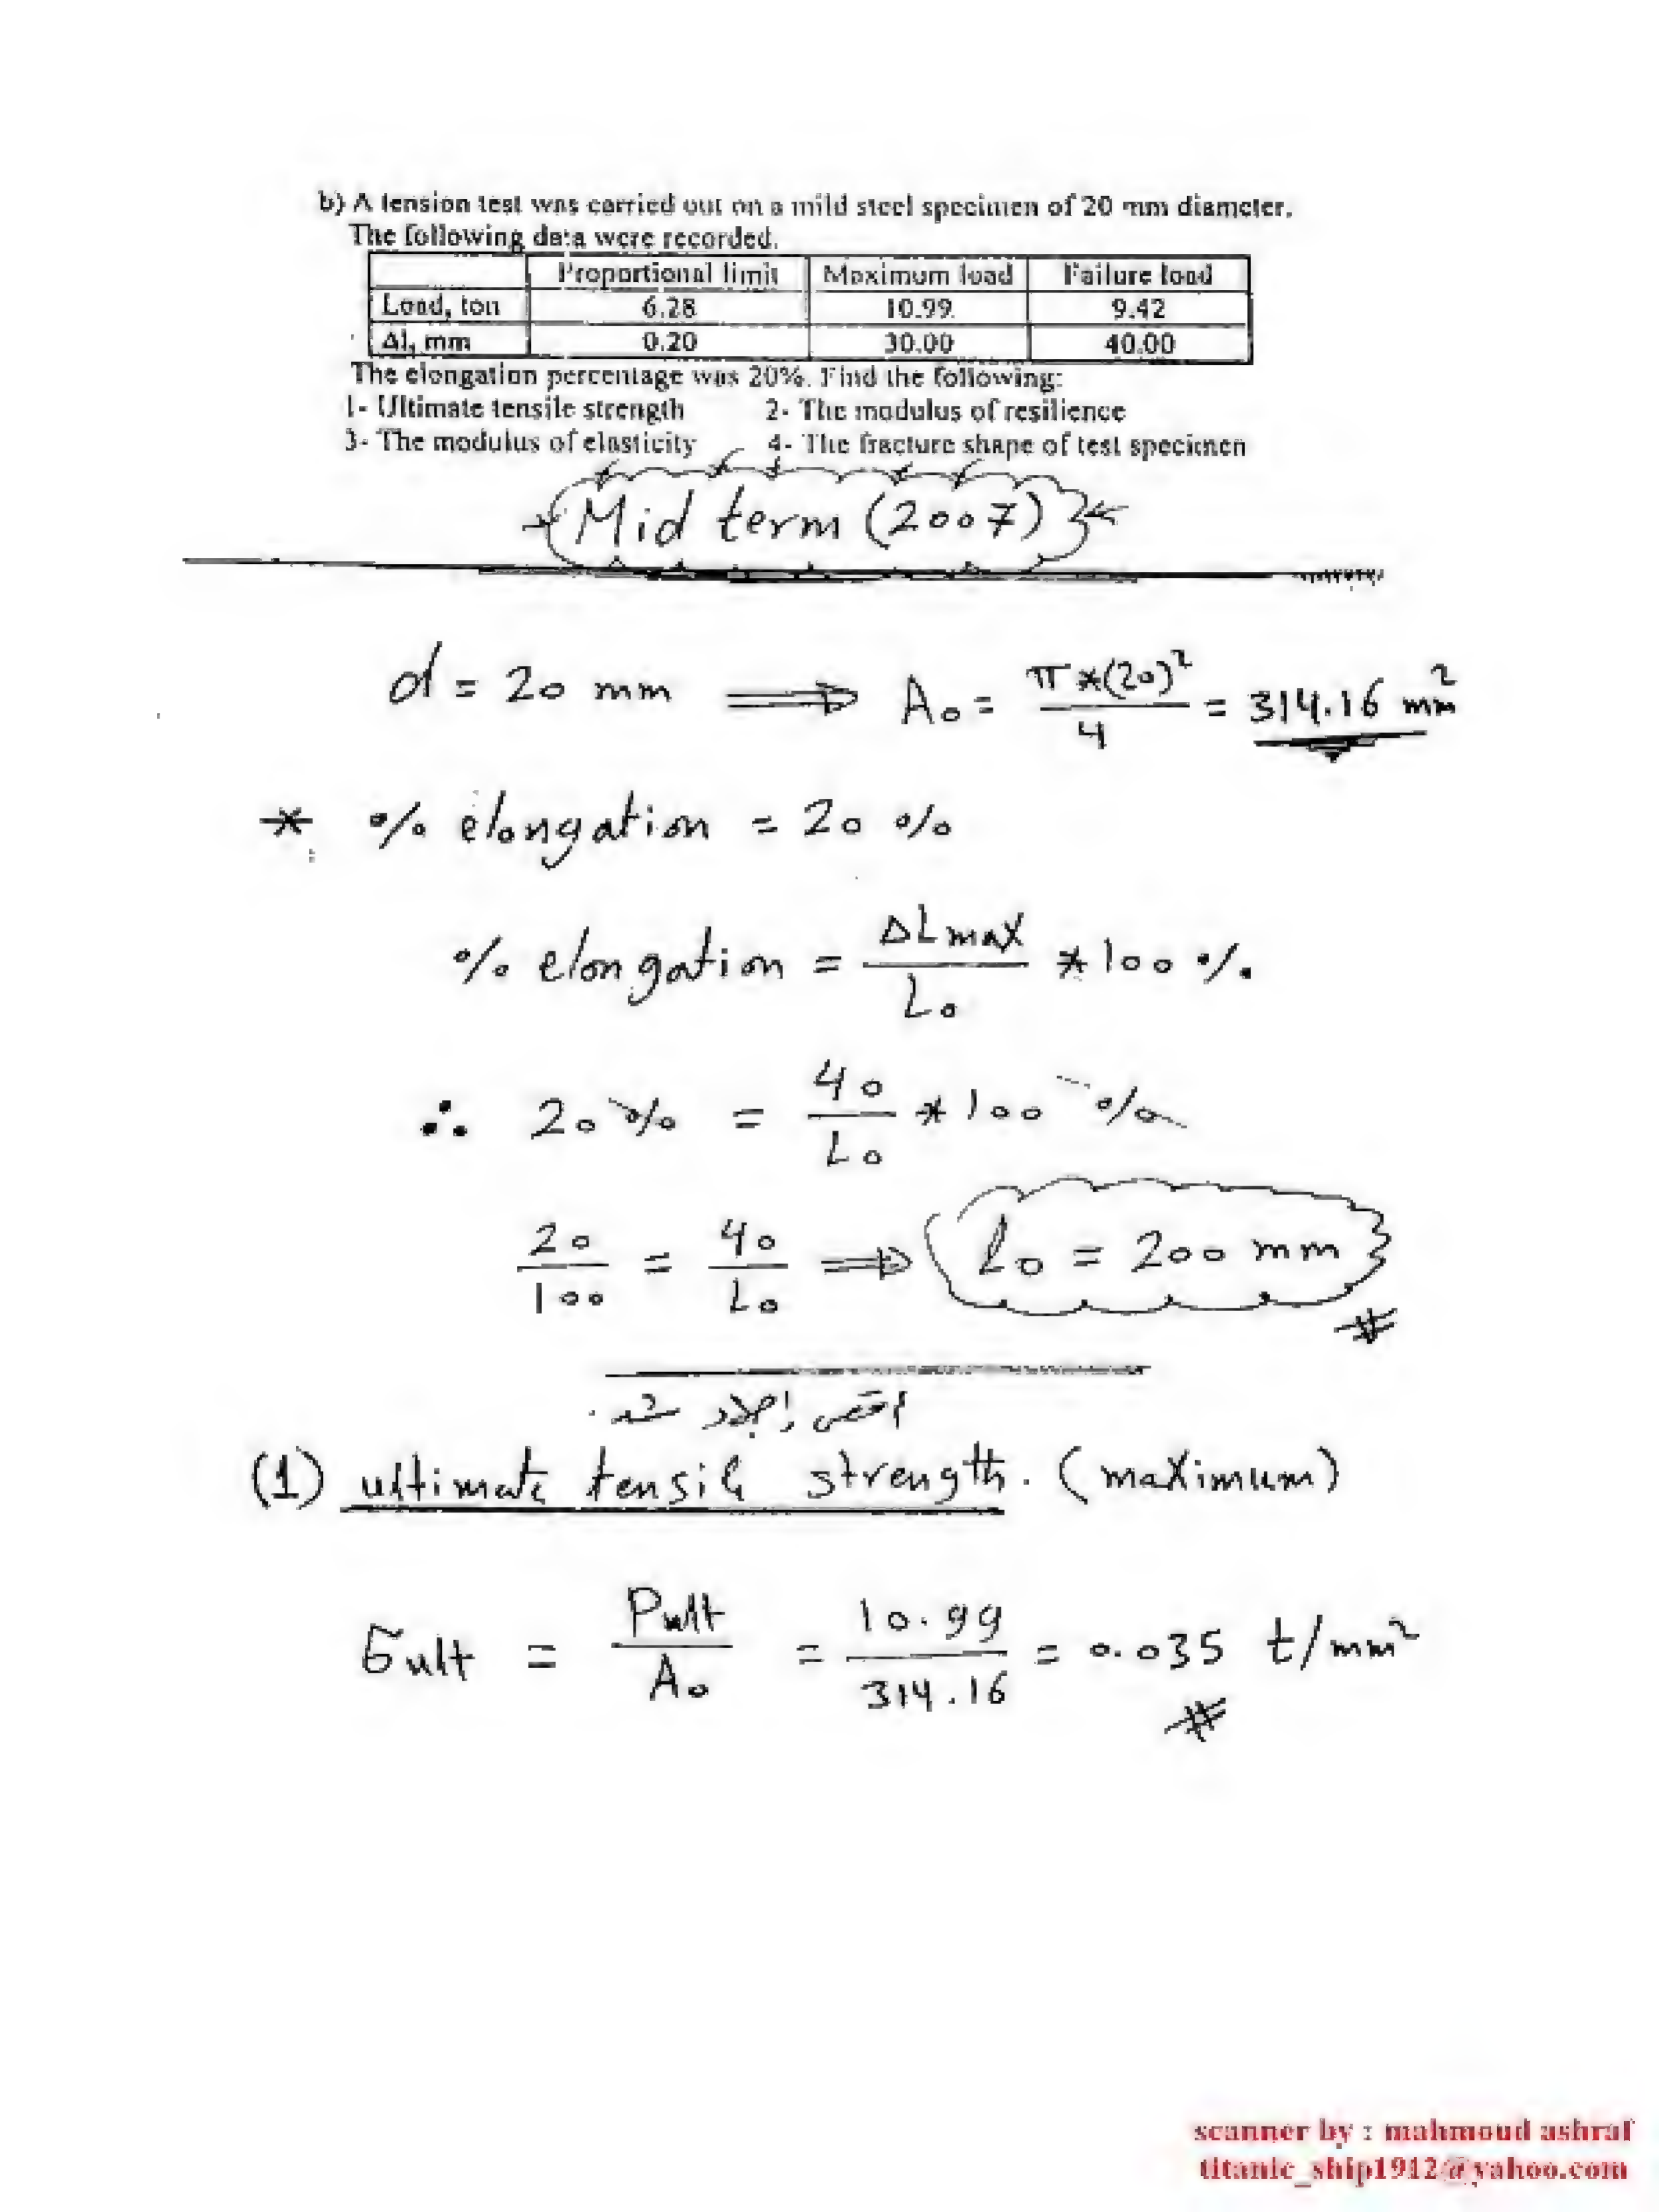 b) A tension test was carried out on a mild steel specimen of 20 mm diameter.
The following data were recorded.
Proportional limit Maximum load Failure load
Load, ton 6.28 10.99 9.42
Δl, mm 0.20 30.00 40.00
The elongation percentage was 20%. Find the following:
1- Ultimate tensile strength 2- The modulus of resilience
3- The modulus of elasticity 4- The fracture shape of test specimen
Mid term (2007)
d = 20 mm ⟹ A₀ = π*(20)²/4 = 314.16 mm²
* % elongation = 20 %
% elongation = ΔLmax/L₀ * 100 %
∴ 20 % = 40/L₀ * 100 %
20/100 = 40/L₀ ⟹ L₀ = 200 mm #
(1) ultimate tensile strength. (maximum)
σult = Pult/A₀ = 10.99/314.16 = 0.035 t/mm² #
scanner by : mahmoud ashraf
titanic_ship1912@yahoo.com